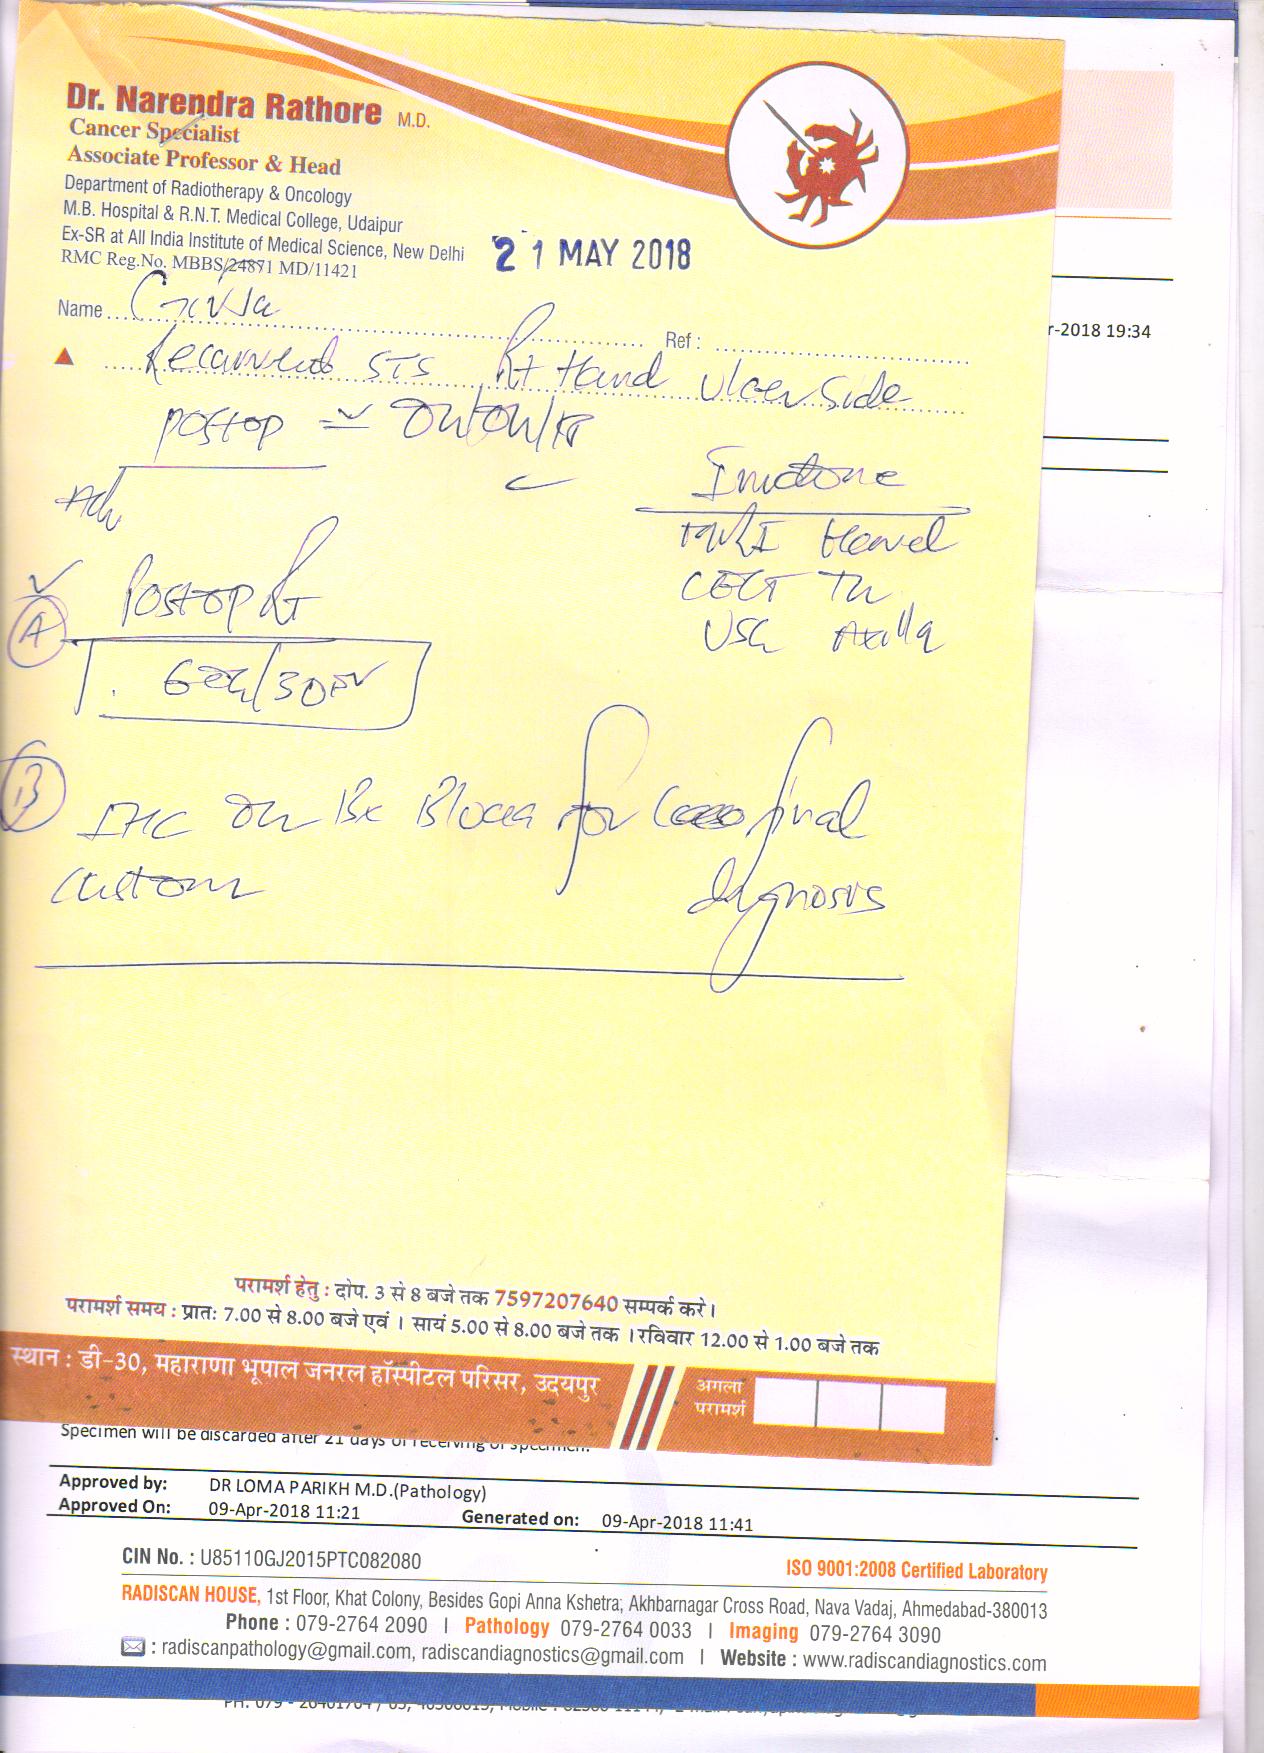 Dr. Narendra Rathore M.D.
Cancer Specialist
Associate Professor & Head
Department of Radiotherapy & Oncology
M.B. Hospital & R.N.T. Medical College, Udaipur
Ex-SR at All India Institute of Medical Science, New Delhi
RMC Reg.No. MBBS/24871 MD/11421
21 MAY 2018
Name
Ref :
r-2018 19:34
STS Rt Hand Side
postop
Adv
MRI Hand
CECT
USG Axilla
A
Postop Rt
B
IHC on Bx Block for final
diagnosis
परामर्श हेतु : दोप. 3 से 8 बजे तक 7597207640 सम्पर्क करे।
परामर्श समय : प्रातः 7.00 से 8.00 बजे एवं । सायं 5.00 से 8.00 बजे तक । रविवार 12.00 से 1.00 बजे तक
स्थान : डी-30, महाराणा भूपाल जनरल हॉस्पीटल परिसर, उदयपुर
अगला
परामर्श
Specimen will be discarded after 21 days of receiving of specimen.
Approved by: DR LOMA PARIKH M.D.(Pathology)
Approved On: 09-Apr-2018 11:21 Generated on: 09-Apr-2018 11:41
CIN No. : U85110GJ2015PTC082080
ISO 9001:2008 Certified Laboratory
RADISCAN HOUSE, 1st Floor, Khat Colony, Besides Gopi Anna Kshetra, Akhbarnagar Cross Road, Nava Vadaj, Ahmedabad-380013
Phone : 079-2764 2090 | Pathology 079-2764 0033 | Imaging 079-2764 3090
: radiscanpathology@gmail.com, radiscandiagnostics@gmail.com | Website : www.radiscandiagnostics.com